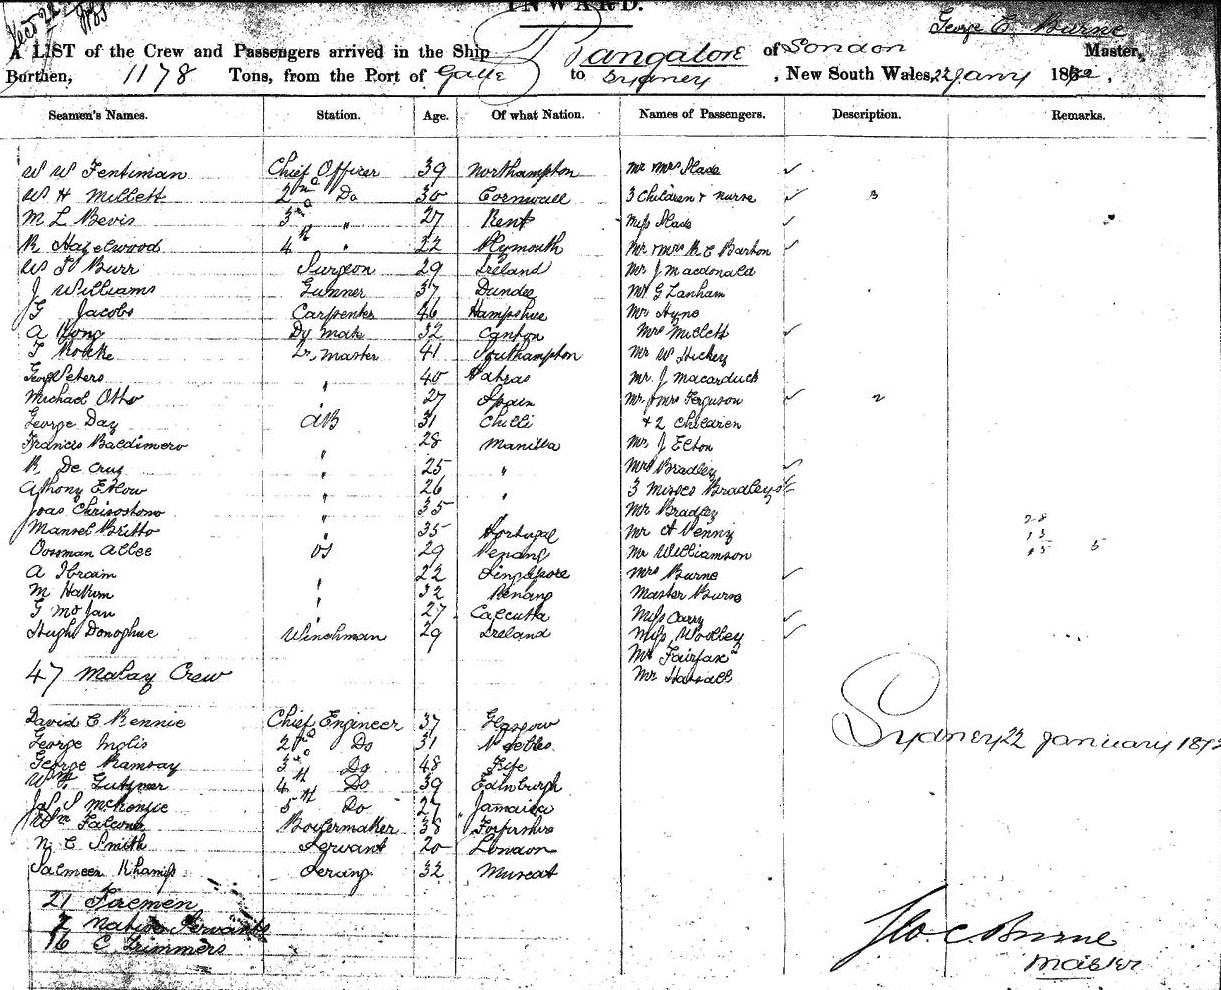 INWARD.
George C Burne
A LIST of the Crew and Passengers arrived in the Ship Bangalore of London Master,
Burthen, 1178 Tons, from the Port of Galle to Sydney , New South Wales, 22 Jany 1872.
Seamen's Names. Station. Age. Of what Nation. Names of Passengers. Description. Remarks.
W W Fentiman Chief Officer 39 Northampton Mr Mrs Slade
W H Millett 2nd Do 30 Cornwall 3 Children + nurse 3
M L Bevis 3rd " 27 Kent Miss Slade
R Hazelwood 4th " 22 Plymouth Mr + Mrs R C Barton
W Burr Surgeon 29 Ireland Mr J Macdonald
J Williams Gunner 37 Dundee Mr G Lanham
G Jacobs Carpenter 46 Hampshire Mr Hyne
A Kong Do mate 32 Canton Mrs Millett
T Rourke Qr. Master 41 Southampton Mr W Hickey
George Peters " 40 Mr. J Macarduch
Michael Otto " 27 Spain Mr. + Mrs Ferguson 2
George Day AB 31 Chilli + 2 Children
Francis Baldimero " 28 Manilla Mr J Elton
R. De Cruz " 25 " Mrs Bradley
Athony " 26 " 3 Misses Bradleys
Joas Chrisostomo " 35 " Mr Bradley
Manuel Britto " 35 Portugal Mr A Penny
Oossman Allee OS 29 Penang Mr Williamson
A Ibraim " 22 Singapore Mrs Burne
M Hakim " 32 Penang Master Burne
G Md Jan " 27 Calcutta Miss Carry
Hugh Donoghue Winchman 29 Ireland Miss Woolley
Mr Fairfax
47 Malay Crew Mr Hassall
David C Rennie Chief Engineer 37 Glasgow
George Inglis 2nd Do 31
George Ramsay 3rd Do 48 Fife
Wm Gutzmer 4th Do 39 Edinburgh
Jas S McKenzie 5th Do 27 Jamaica
Wm Falconer Boilermaker 38 Forfirshire
N C Smith Servant 20 London
Salmeen Khamis Serang 32 Muscat
Sydney 22 January 1872
21 Firemen
7 Native Servants
16 C Trimmers
Geo. C Burne
Master